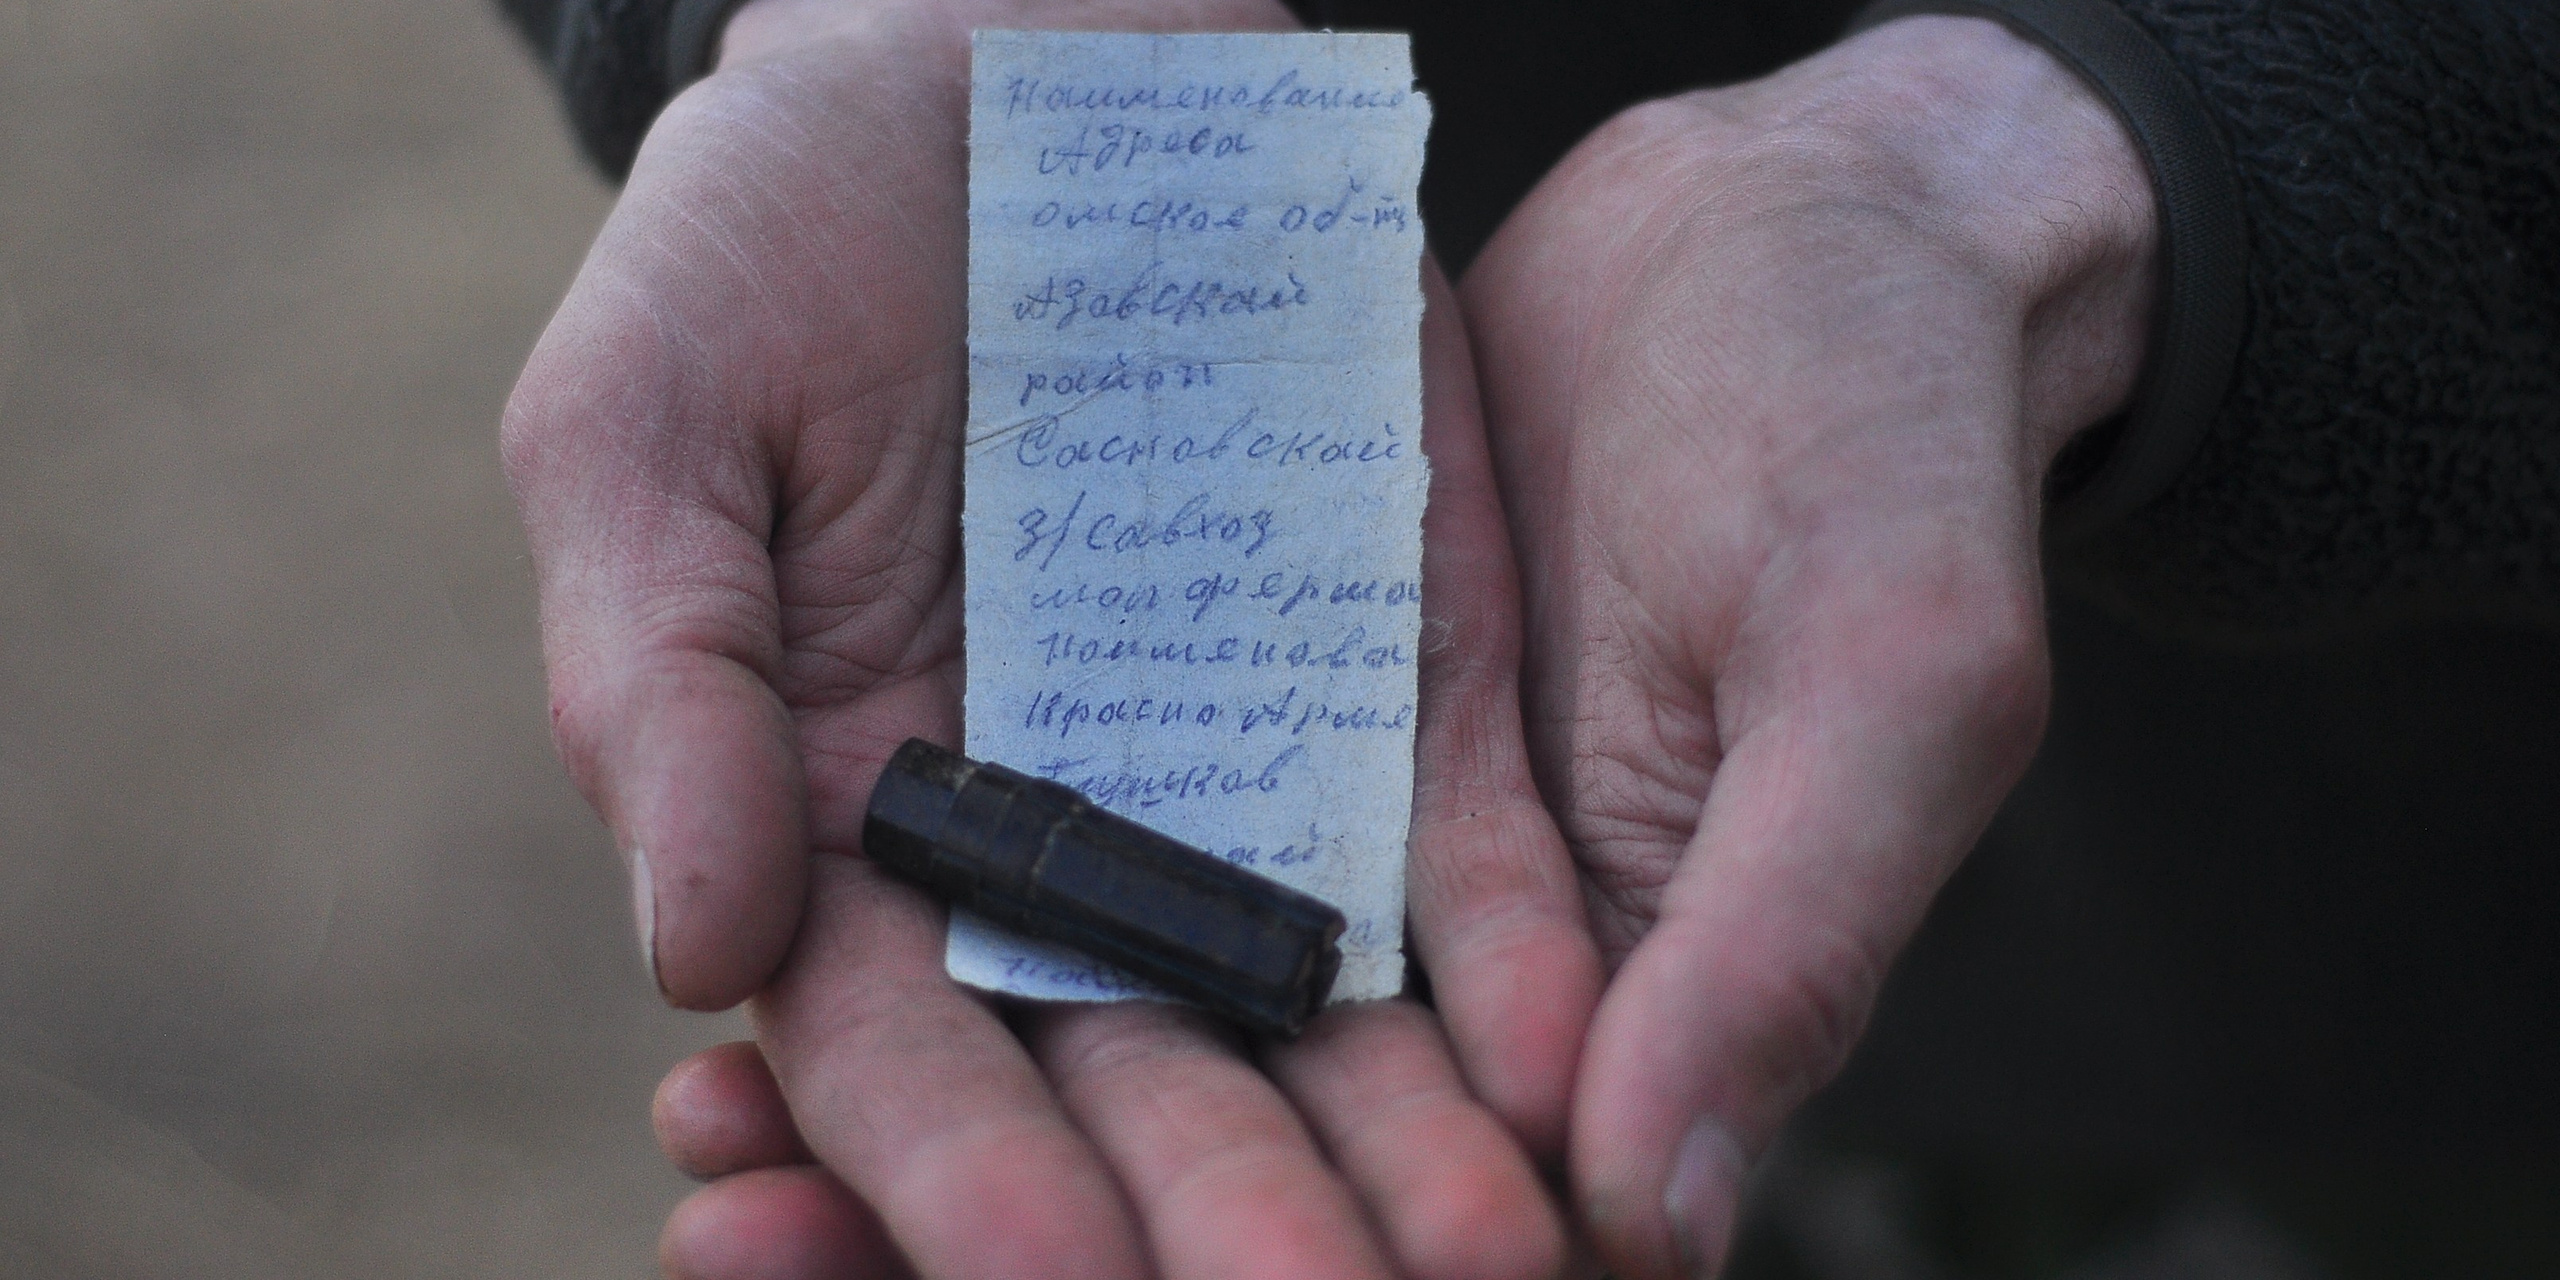 Наименование
Адреса
омскае об-ть
Азавскай
район
Сасновскай
з/савхоз
мол ферма
Наименова
Красно Арме
Глушков